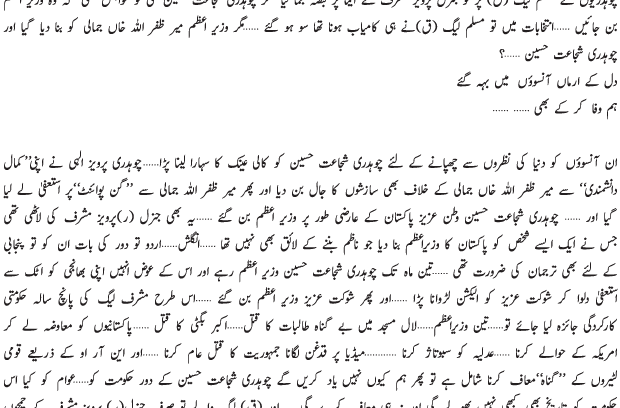 بن جائیں ......انتخابات میں تو مسلم لیگ (ق)نے ہی کامیاب ہونا تھا سو ہو گئے .....مگر وزیر اعظم میر ظفر اللہ خاں جمالی کو بنا دیا گیا اور
چوہدری شجاعت حسین ......؟
دل کے ارماں آنسوؤں میں بہہ گئے
ہم وفا کر کے بھی ...... ......
ان آنسوؤں کو دنیا کی نظروں سے چھپانے کے لئے چوہدری شجاعت حسین کو کالی عینک کا سہارا لینا پڑا......چوہدری پرویز الہی نے اپنی”کمال
دانشمندی“ سے میر ظفر اللہ خاں جمالی کے خلاف بھی سازشوں کا جال بن دیا اور پھر میر ظفر اللہ جمالی سے ”گن پوائنٹ“پر استعفیٰ لے لیا
گیا اور ...... چوہدری شجاعت حسین وطن عزیز پاکستان کے عارضی طور پر وزیر اعظم بن گئے ......یہ بھی جنرل (ر)پرویز مشرف کی لاٹھی تھی
جس نے ایک ایسے شخص کو پاکستان کا وزیراعظم بنا دیا جو ناظم بننے کے لائق بھی نہیں تھا ......انگلش......اردو تو دور کی بات ان کو تو پنجابی
کے لئے بھی ترجمان کی ضرورت تھی ......تین ماہ تک چوہدری شجاعت حسین وزیر اعظم رہے اور اس کے عوض انہیں اپنی بھانجی کو اٹک سے
استعفیٰ دلوا کر شوکت عزیز کو الیکشن لڑوانا پڑا ......اور پھر شوکت عزیز وزیر اعظم بن گئے ......اس طرح مشرف لیگ کی پانچ سالہ حکومتی
کارکردگی جائزہ لیا جائے تو......تین وزیراعظم......لال مسجد میں بے گناہ طالبات کا قتل......اکبر بگٹی کا قتل ......پاکستانیوں کو معاوضہ لے کر
امریکہ کے حوالے کرنا ......عدلیہ کو سبوتاژ کرنا ............میڈیا پر قدغن لگانا جمہوریت کا قتل عام کرنا ......اور این آر او کے ذریعے قومی
لٹیروں کے ”گناہ“معاف کرنا شامل ہے تو پھر ہم کیوں نہیں یاد کریں گے چوہدری شجاعت حسین کے دور حکومت کو......عوام کو کیا اس